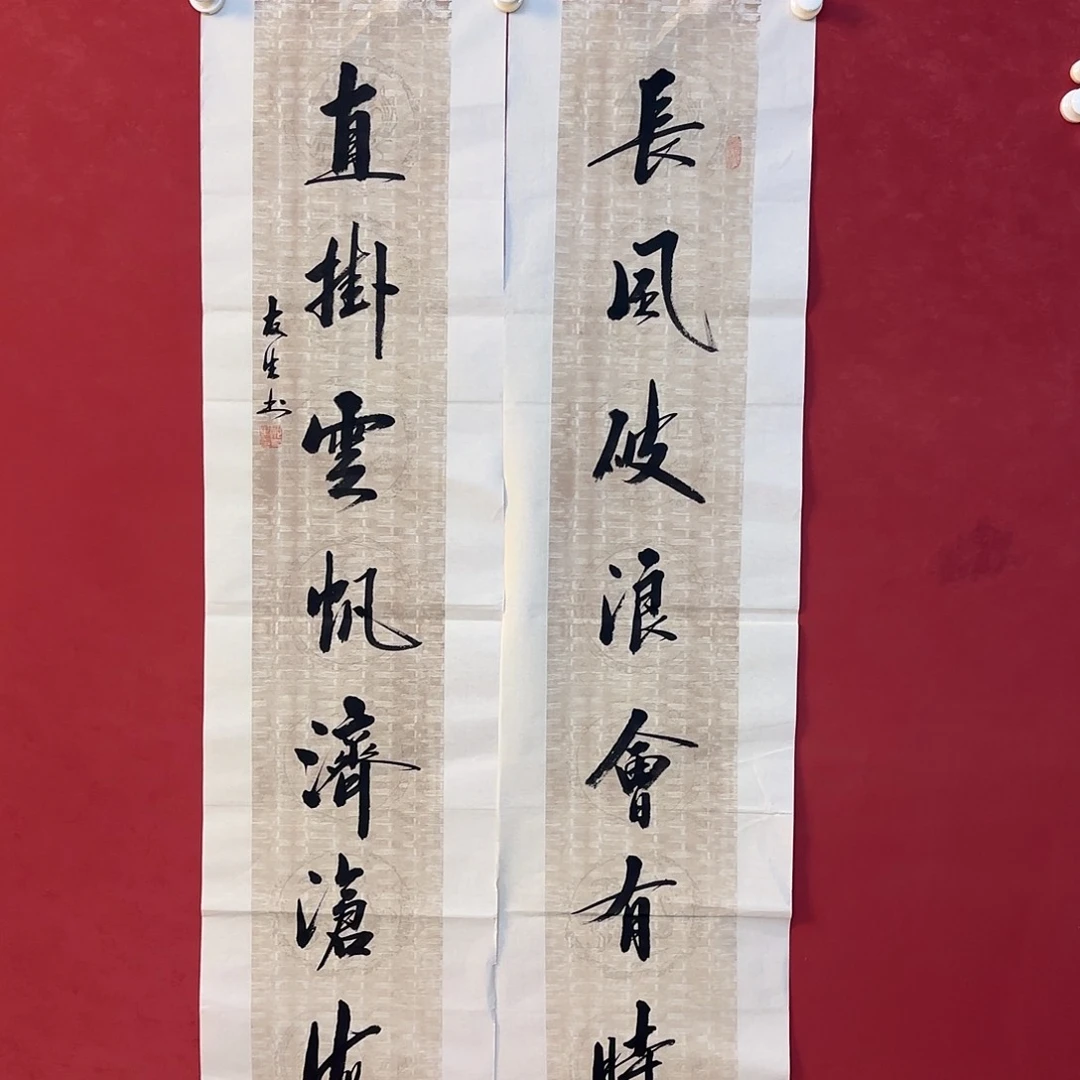 長風破浪會有時
直掛雲帆濟滄海
友生书